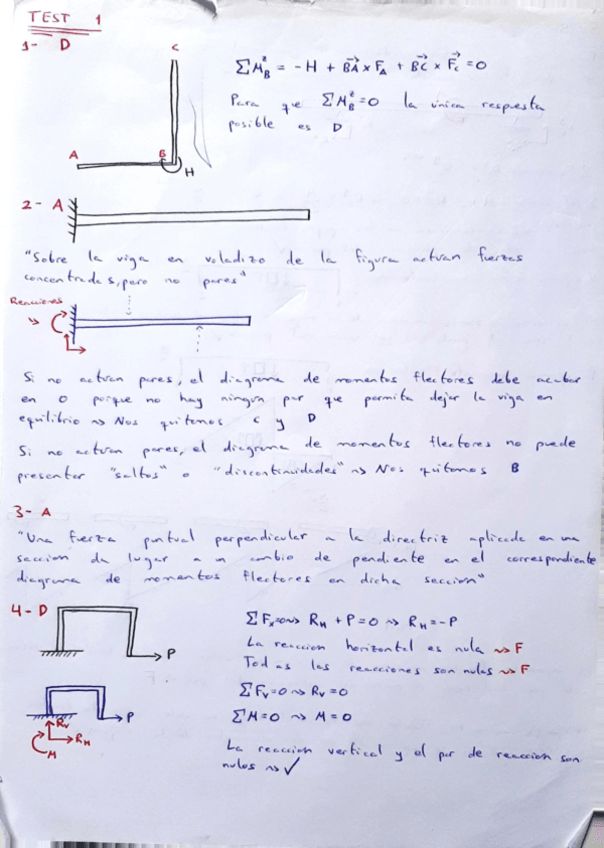 TEST 1
1- D
C
A
B
H
ΣM_B^z = -H + BA⃗ x F_A⃗ + BC⃗ x F_C⃗ = 0
Para que ΣM_B^z = 0 la única respuesta
posible es D
2- A
"Sobre la viga en voladizo de la figura actuan fuerzas
concentradas, pero no pares"
Reacciones
Si no actuan pares, el diagrama de momentos flectores debe acabar
en 0 porque no hay ningun par que permita dejar la viga en
equilibrio ⇝ Nos quitamos C y D
Si no actuan pares, el diagrama de momentos flectores no puede
presentar "saltos" o "discontinuidades" ⇝ Nos quitamos B
3- A
"Una fuerza puntual perpendicular a la directriz aplicada en una
seccion da lugar a un cambio de pendiente en el correspondiente
diagrama de momentos flectores en dicha seccion"
4- D
P
ΣFx=0 ⇝ R_H + P = 0 ⇝ R_H = -P
La reaccion horizontal es nula ⇝ F
Todas las reacciones son nulas ⇝ F
P
R_V
R_H
M
ΣF_V=0 ⇝ R_V = 0
ΣM=0 ⇝ M = 0
La reaccion vertical y el par de reaccion son
nulos ⇝ ✓